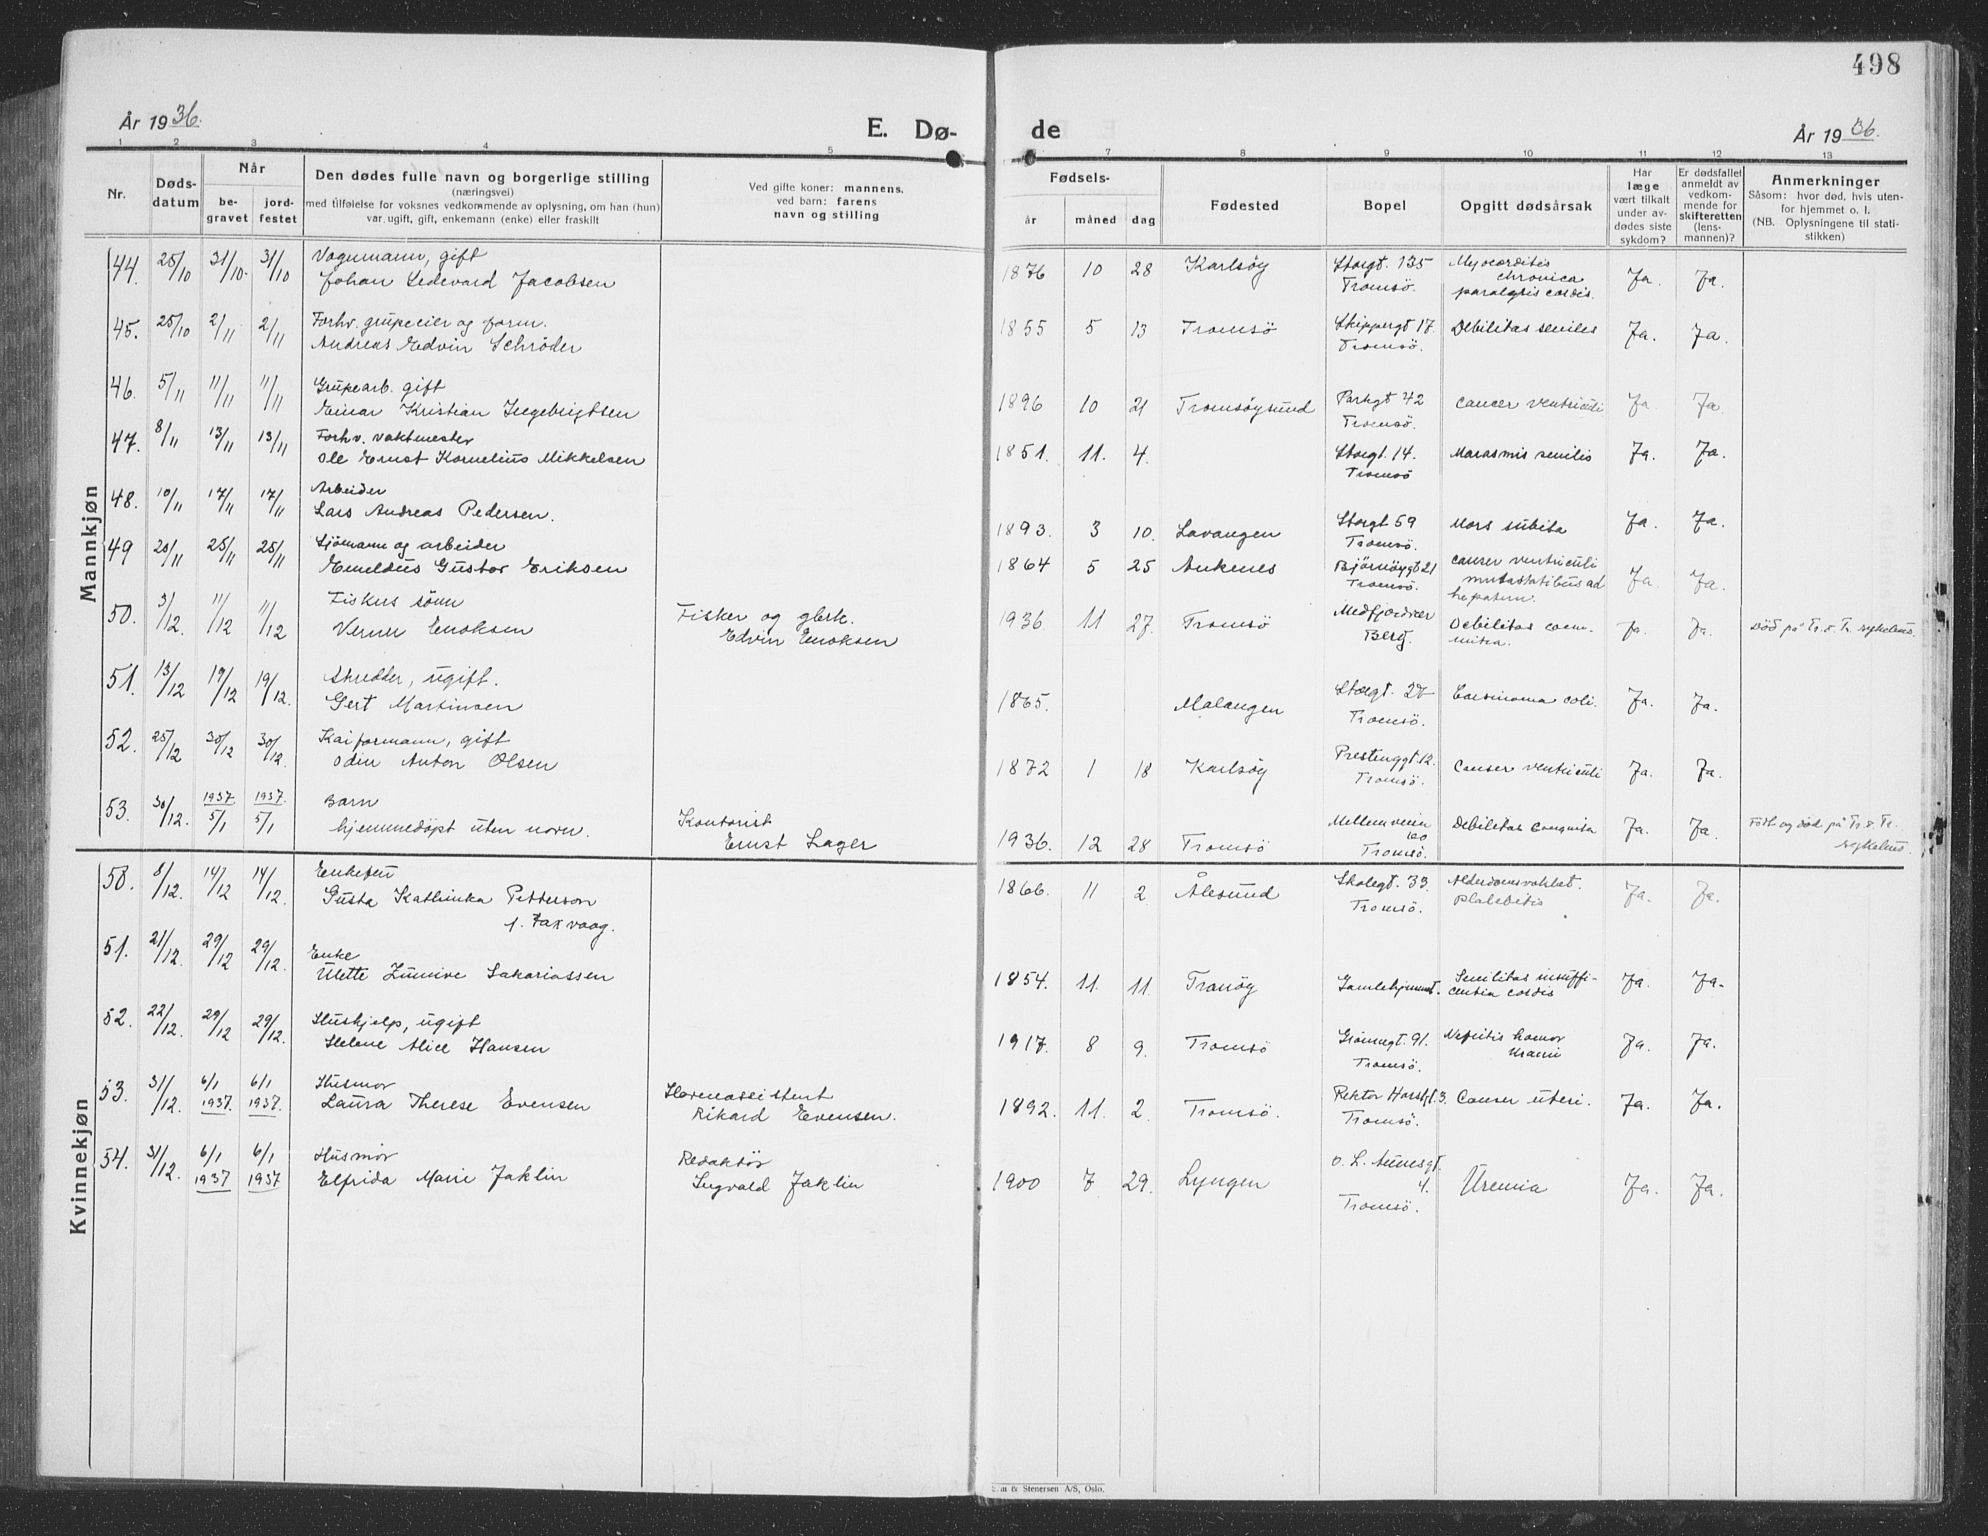 498
År 1936.
E. Dø-
de
År 1936.
1 2 3 4 5
7 8 9 10 11 12 13
Nr.
Døds-
datum
Når
be-
gravet
jord-
festet
Den dødes fulle navn og borgerlige stilling
(næringsvei)
med tilføielse for voksnes vedkommende av oplysning, om han (hun)
var ugift, gift, enkemann (enke) eller fraskilt
Ved gifte koner: mannens,
ved barn: farens
navn og stilling
Fødsels-
år måned dag
Fødested
Bopel
Opgitt dødsårsak
Har
læge
vært tilkalt
under av-
dødes siste
sykdom?
Er dødsfallet
anmeldt av
vedkom-
mende for
skifteretten
(lens-
mannen)?
Anmerkninger
Såsom: hvor død, hvis uten-
for hjemmet o. l.
(NB. Oplysningene til stati-
stikken)
Mannkjøn
44. 25/10 31/10. 31/10 Vognmann, gift
Johan Ledevard Jacobsen
1876 10 28 Karlsöy Storgt. 135 Tromsö. Myocarditis chronica paralysis cordis. Ja. Ja.
45. 25/10 2/11 2/11 Forhv. grubeeier og form.
Andreas Edvin Schröder
1855 5 13 Tromsö Skippergt 17. Tromsö. Debilitas seniles Ja. Ja.
46. 5/11 11/11 11/11 Grubearb. gift
Einar Kristian Ingebrigtsen
1896 10 21 Tromsöysund Parkgt 42 Tromsö. Cancer ventriculi Ja. Ja.
47. 8/11 13/11 13/11 Forhv. vaktmester
Ole Ernst Kornelius Mikkelsen
1851. 11. 4. Storgt. 14. Tromsö Marasmis senilis Ja. Ja.
48. 10/11 17/11 17/11 Arbeider
Lars Andreas Pedersen.
1893. 3 10. Lavangen Storgt 59 Tromsö. Mors subita Ja. Ja.
49 20/11 25/11 25/11 Sjömann og arbeider
Emeldus Gustav Eriksen
1864 5 25 Ankenes Bjørnöygt 21 Tromsö. Cancer ventriculi metastatibus ad hepatem. Ja. Ja.
50. 3/12. 11/12 11/12 Fiskers sönn
Verner Enoksen
Fisker og gbrk.
Edvin Enoksen
1936 11 27. Tromsö Medfjordvær Berg. Debilitas congenita. Ja. Ja. Död på Tr. s. Tr. sykehus.
51. 13/12 19/12 19/12. Skredder, ugift.
Gert Martinsen
1865. Malangen Storgt. 27 Tromsö. Carsinoma coli. Ja. Ja.
52. 25/12 30/12 30/12. Kaiformann, gift
Odin Anton Olsen
1872 1 18 Karlsöy Prestenggt. 12. Tromsö. Cancer ventriculi Ja. Ja.
53. 30/12. 1937 5/1 1937. 5/1 Barn
hjemmedöpt uten navn.
Kontorist
Ernst Lager
1936. 12 28 Tromsö Mellemveien 60 Tromsö. Debilitas Congenita Ja. Ja. Född og död på Tr. s. Tr. sykehus.
Kvinnekjøn
50. 8/12. 14/12 14/12. Enkefru
Gusta Kathinka Petterson
f. Faxvaag.
1866. 11 2. Ålesund Skolegt. 33. Tromsö. Alderdomssvakhet. Flebebitis Ja. Ja.
51. 21/12. 29/12 29/12. Enke
Ulette Zumire Sakariassen
1854. 11. 11. Tranöy Gamlehjemmet. Senilitas insufficentia cordis Ja. Ja.
52. 22/12. 29/12 29/12. Hushjelp, ugift
Helene Alice Hansen
1917. 8 9. Tromsö Grönnegt. 91. Tromsö. Nefritis Uremi Ja. Ja.
53. 31/12. 6/1 1937. 6/1 1937. Husmor
Laura Therese Evensen
Havneassistent
Rikard Evensen.
1892. 11. 2. Tromsö. Rektor Horstgt. 3. Tromsö. Cancer uteri. Ja. Ja.
54. 31/12. 6/1 1937 6/1 1937 Husmor
Elfrida Marie Jaklin
Redaktör
Ingvald Jaklin
1900 7 29. Lyngen O. L. Aunesgt. 4. Tromsö. Uremia Ja. Ja.
& Stenersen A/S, Oslo.